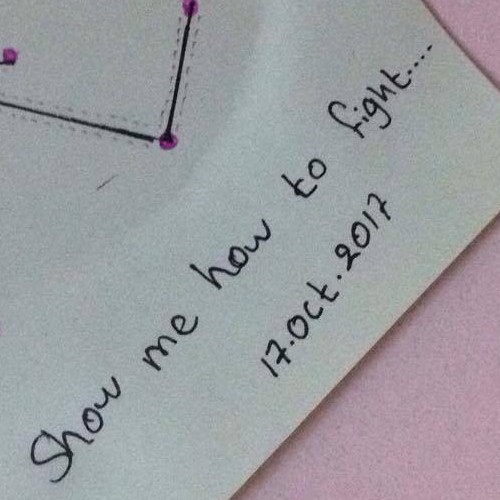 Show me how to fight....
17.Oct.2017